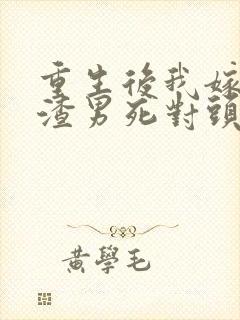 重生後我嫁
渣男死對頭
黃學毛